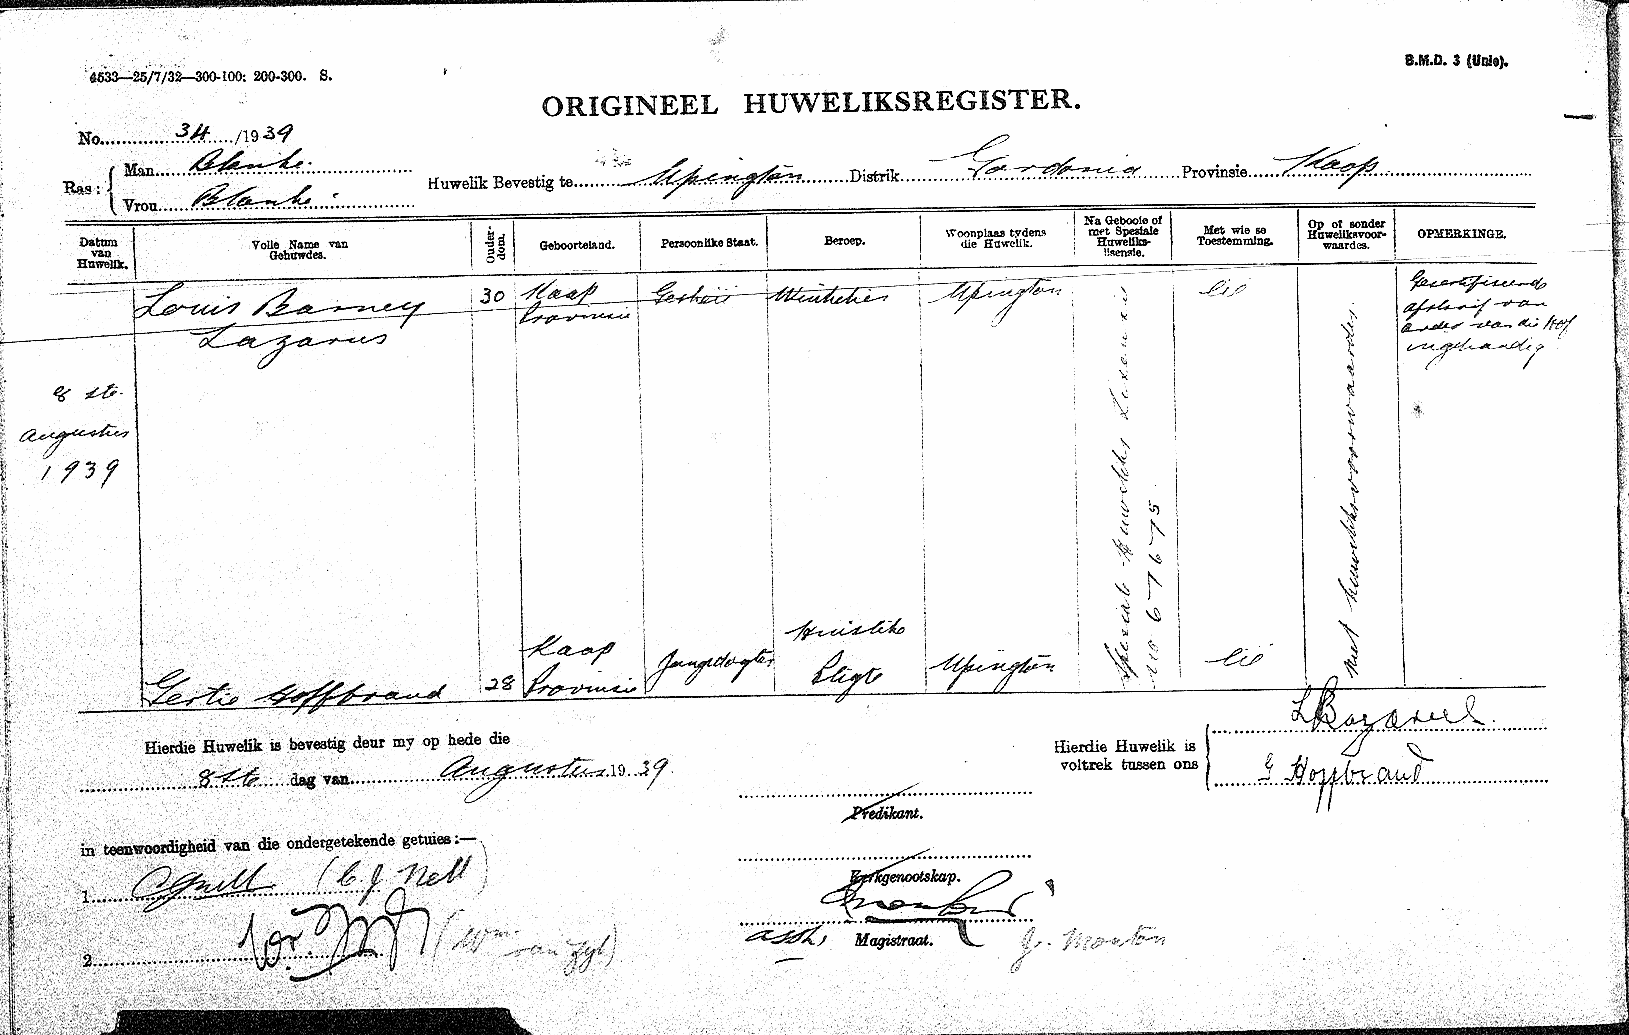 4533—25/7/32—300-100: 200-300. S.
B.M.D. 3 (Unie).
ORIGINEEL HUWELIKSREGISTER.
No. 34 /1939
Ras: Man Blanke.
Vrou Blanke.
Huwelik Bevestig te Upington Distrik Gordonia Provinsie Kaap
Datum van Huwelik.
Volle Name van Gehuwdes.
Ouderdom.
Geboorteland.
Persoonlike Staat.
Beroep.
Woonplaas tydens die Huwelik.
Na Geboole of met Spesiale Huweliks-lisensie.
Met wie se Toestemming.
Op of sonder Huweliksvoorwaardes.
OPMERKINGE.
8 ste.
Augustus
1939
Louis Barney
Lazarus
30
Kaap
Provinsie
Geskei
Winkelier
Upington
Gesertifiseerde
afskrif van
order van die Hof
ingehandig
Spesiale Huweliks Lisensie
no 67675
met huweliksvoorwaardes
Gertie Hoffbrand
28
Kaap
Provinsie
Jongedogter
Huislike
Pligte
Upington
Hierdie Huwelik is bevestig deur my op hede die
8ste dag van Augustus 1939.
in teenwoordigheid van die ondergetekende getuies:—
1. CJNell (C. J. Nell)
2. (Wm van Zyl)
Predikant.
Kerkgenootskap.
asst. Magistraat.
J. Mouton
Hierdie Huwelik is voltrek tussen ons
LBLazarus.
G Hoffbrand